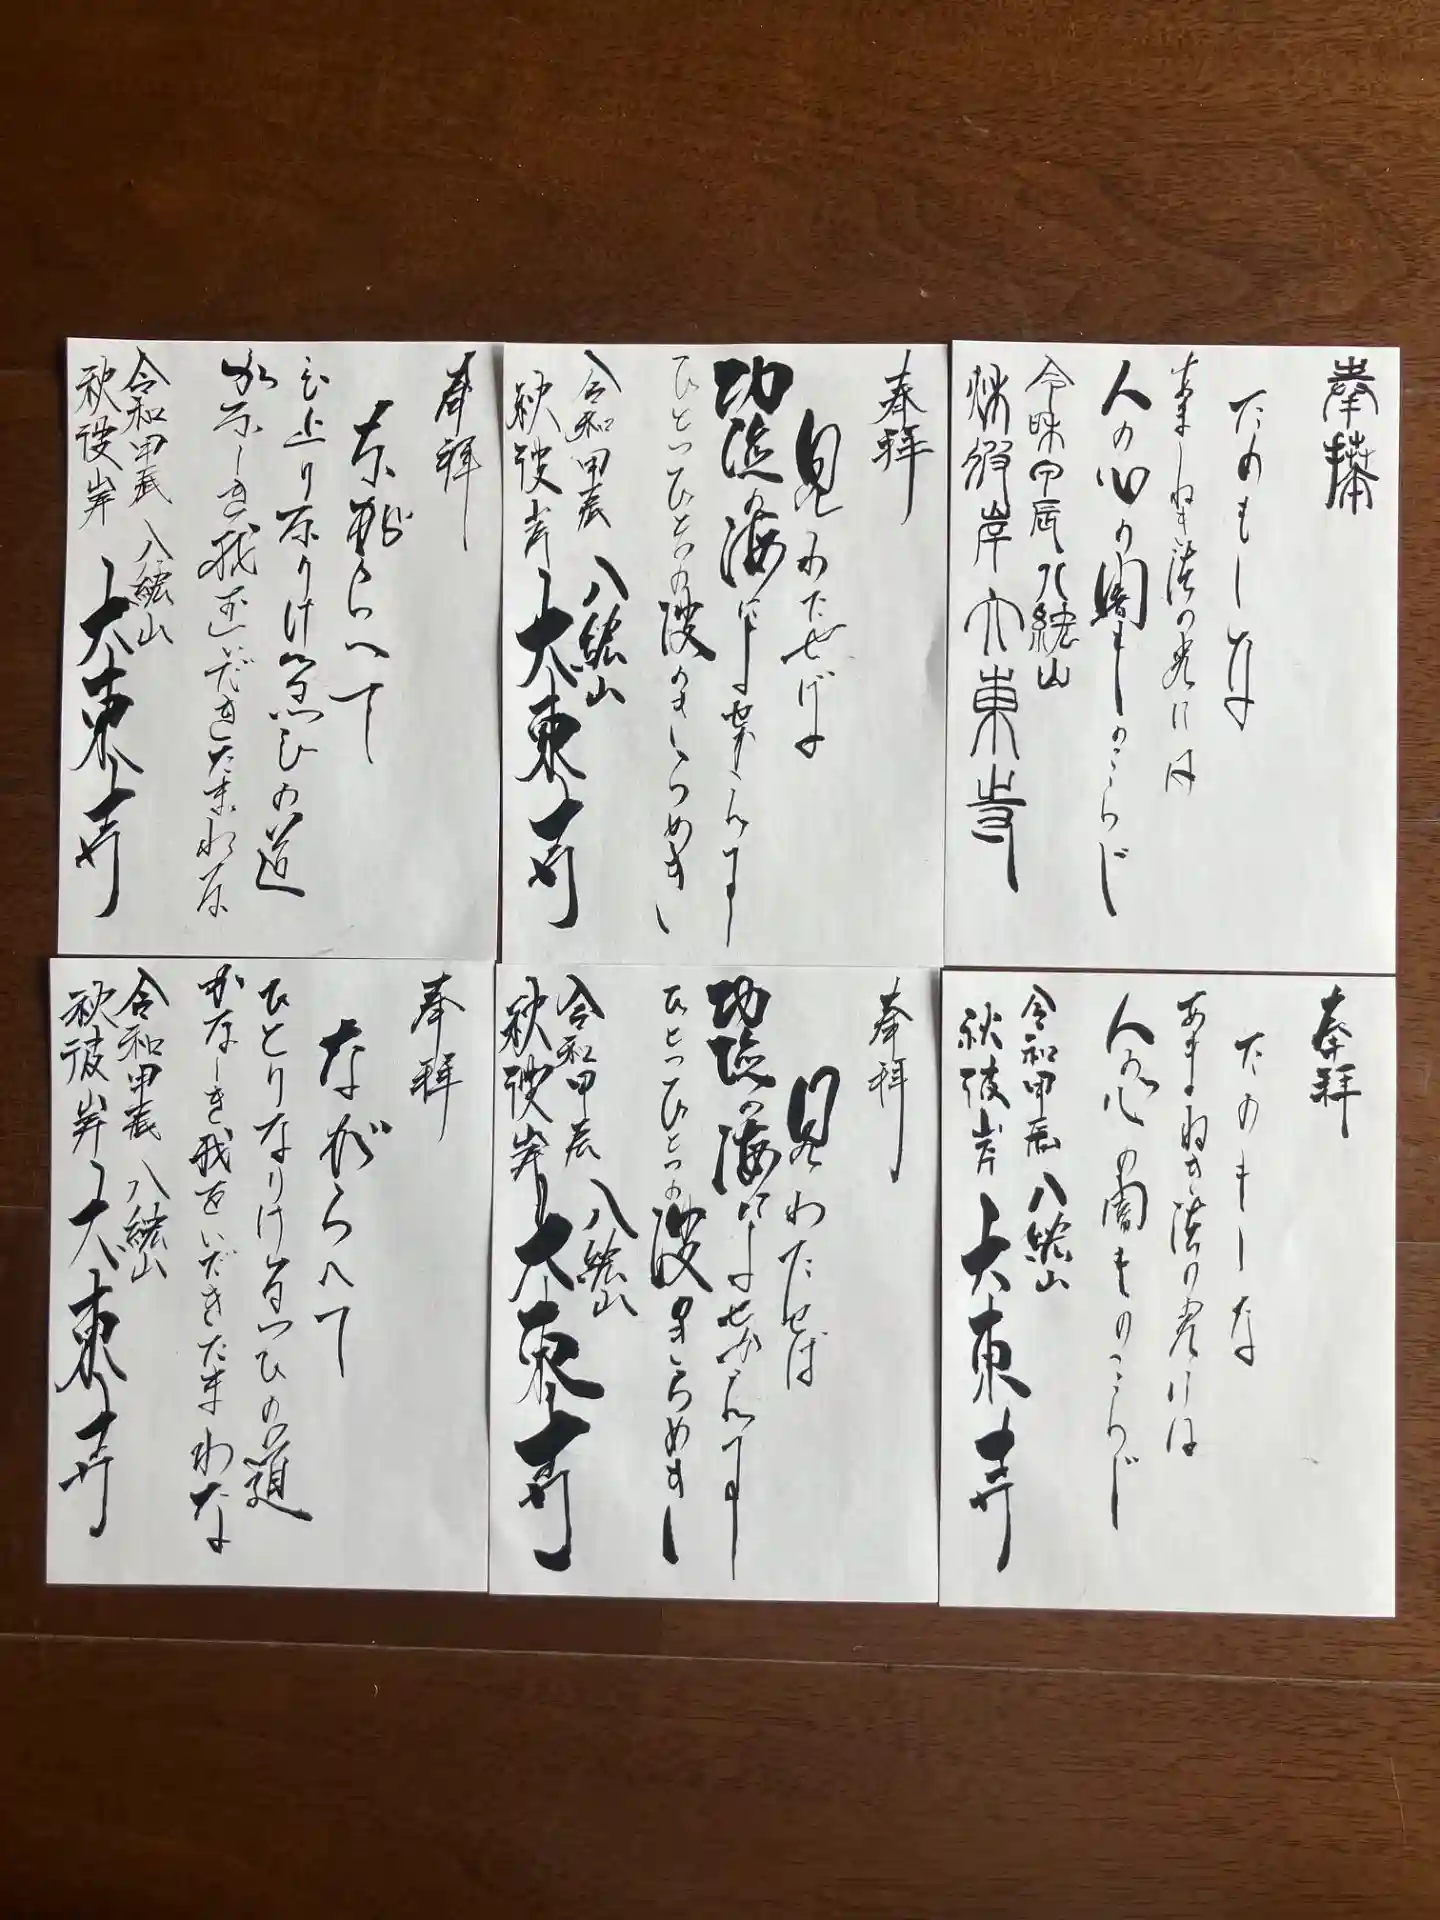 奉拝
たのもしな
あまねき法の光には
人の心の闇ものこらじ
令和甲辰 八紘山
秋彼岸 大東寺
奉拝
見わたせば
功徳の海によせかへす
ひとつひとつの波のきらめき
令和甲辰 八紘山
秋彼岸 大東寺
奉拝
ながらへて
ひとりなりけるつひの道
かなしき我をいだきたまわな
令和甲辰 八紘山
秋彼岸 大東寺
奉拝
たのもしな
あまねき法の光には
人の心の闇ものこらじ
令和甲辰 八紘山
秋彼岸 大東寺
奉拝
見わたせば
功徳の海によせかへす
ひとつひとつの波のきらめき
令和甲辰 八紘山
秋彼岸 大東寺
奉拝
ながらへて
ひとりなりけるつひの道
かなしき我をいだきたまわな
令和甲辰 八紘山
秋彼岸 大東寺